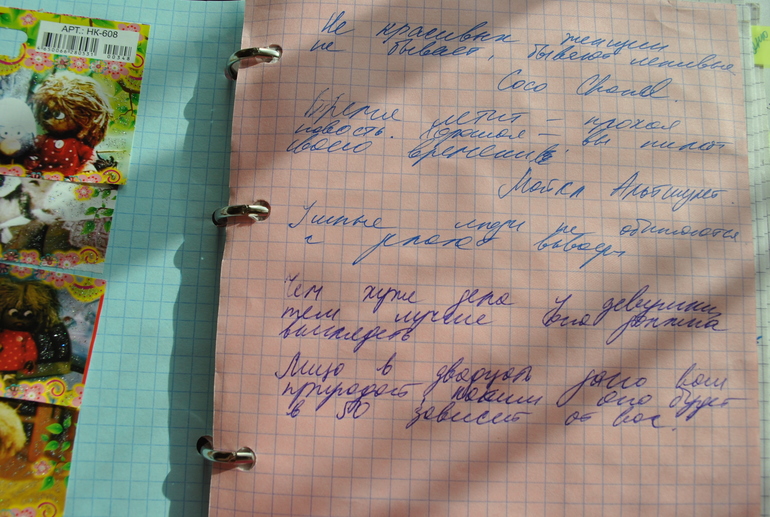 АРТ.: НК-608
Не красивых женщин
не бывает, бывают ленивые
Coco Chanel.
Время летит – плохая
новость. Хорошая – вы пилот
своего времени.
Майкл Альтшулер.
Умные люди не обижаются
а делают выводы
Чем хуже дела у девушки
тем лучше она должна
выглядеть
Лицо в двадцать дано вам
природой, каким оно будет
в 50 зависит от вас.